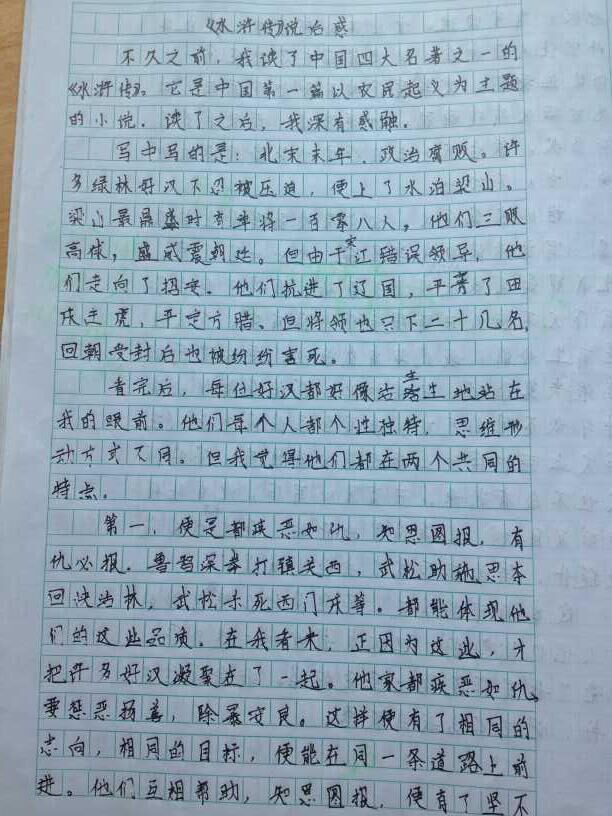 《水浒传》读后感
不久之前，我读了中国四大名著之一的
《水浒传》。它是中国第一篇以农民起义为主题
的小说。读了之后，我深有感触。
写的是：北宋末年，政治腐败。许
多绿林好汉不忍被压迫，便上了水泊梁山。
梁山最鼎盛时有率将一百零八人。他们三败
高俅，盛威震朝廷。但由于宋江错误领导，他
们走向了招安。他们抗进了辽国，平了田
虎王虎，平定方腊。但将领也只下二十几名，
回朝受封后也被纷纷害死。
看完后，每位好汉都好像活生生地站在
我的眼前。他们每个人都个性独特，思维形
动方式不同。但我觉得他们都在两个共同的
特点。
第一，便是都疾恶如仇，知恩图报，有
仇必报。鲁智深拳打镇关西，武松助施恩夺
回快活林，武松杀死西门庆等。都能体现他
们的这些品质。在我看来，正因为这些，才
把许多好汉凝聚在了一起。他家都疾恶如仇、
要惩恶扬善，除暴安良。这样便有了相同的
志向，相同的目标，便能在同一条道路上前
进。他们互相帮助，知恩图报，便有了坚不